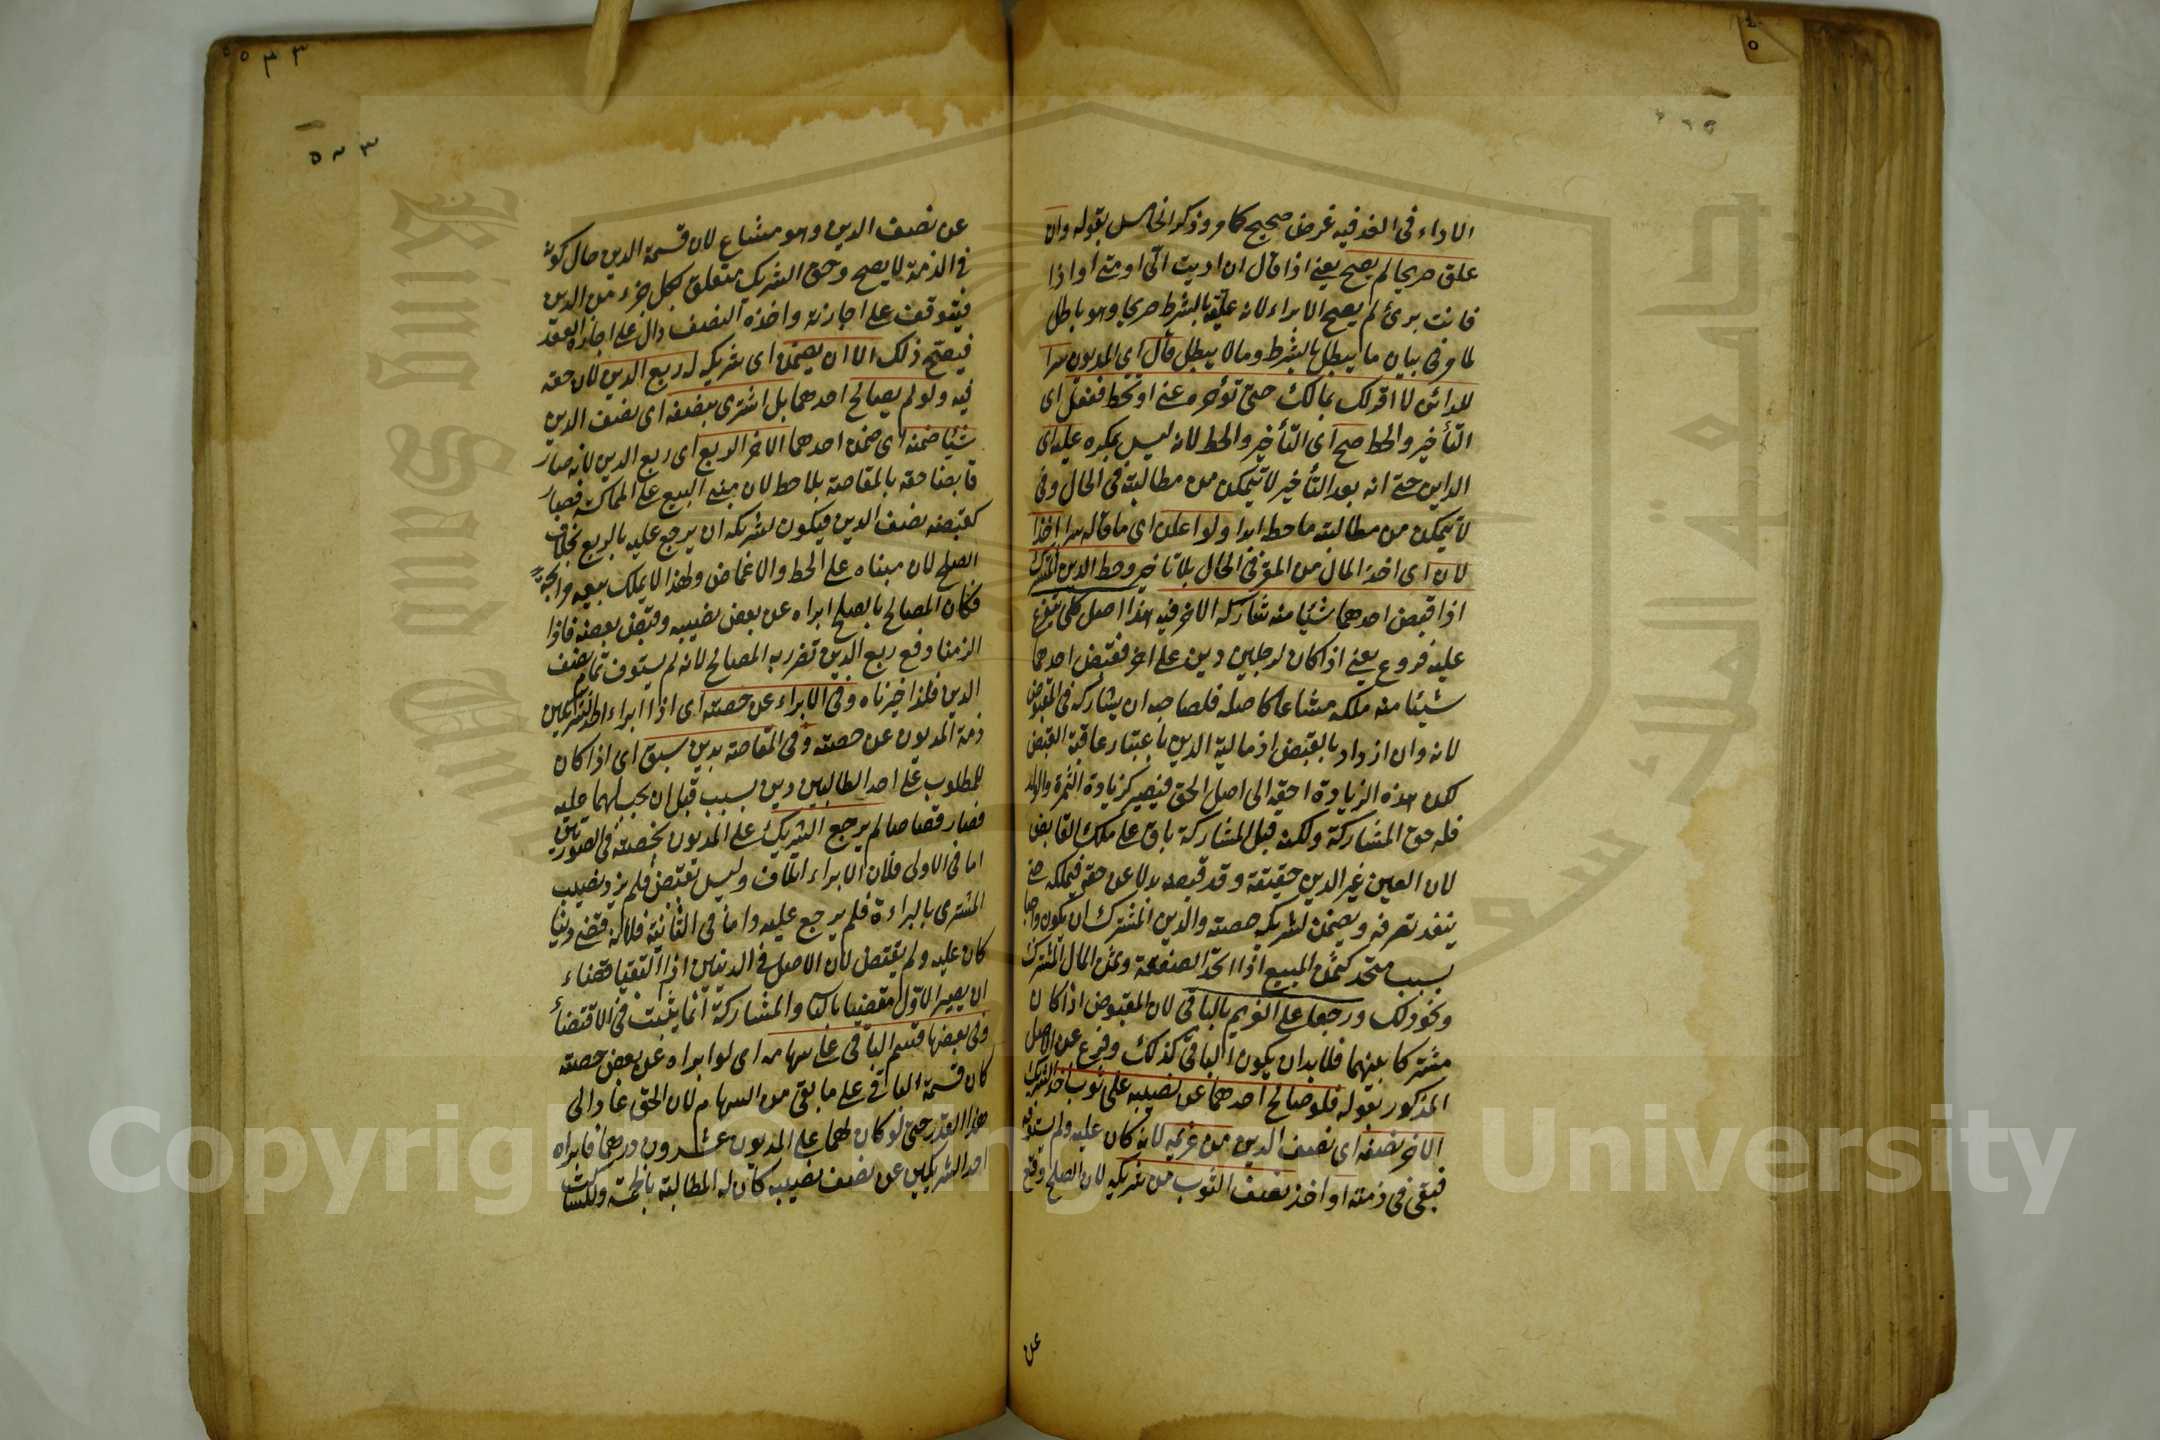 الاداء في الغد فيه غرض صحيح كما مر وذكر الخامس بقوله وان
علق صريحا لم يصح يعني اذا قال ان اديت الى او متى او اذا
فانت برئ لم يصح الابراء لانه علقه بالشرط صريحا وهو باطل
لما مر في بيان ما يبطل بالشرط وما لا يبطل قال اي المديون سرا
للدائن لا اقر لك بمالك حتى تؤخره عني او تحط ففعل اي
التأخير والحط صح اي التأخير والحط لانه ليس بمكره عليه اي
الداين حتى انه بعد التأخير لا يتمكن من مطالبته في الحال وفي
لا يتمكن من مطالبته ما حطه ابدا ولو اعلن اي ما قاله سرا اخذ
الان اي اخذ المال من المقر في الحال بلا تاخير وحط الدين المشترك
اذا قبض احدهما شيئا منه شاركه الاخر فيه هذا اصل كلي يتفرع
عليه فروع يعني اذا كان لرجلين دين على اخر فقبض احدهما
شيئا منه ملكه مشاعا كاصله فلصاحبه ان يشاركه في المقبوض
لانه وان ازداد بالقبض اذ مالية الدين باعتبار عاقبة القبض
لكن هذه الزيادة راجعة الى اصل الحق فيصير كزيادة الثمرة والولد
فله حق المشاركة ولكنه قبل المشاركة باق على ملك القابض
لان العين غير الدين حقيقة وقد قبضه بدلا عن حقه فيملكه حتى
ينفذ تصرفه ويضمن لشريكه حصته والدين المشترك ان يكون واجبا
بسبب متحد كثمن المبيع اذا اتحد الصفقة وثمن المال المشترك
ونحو ذلك ورجعا على الغريم بالباقي لان المقبوض اذا كان
مشتركا بينهما فلا بد ان يكون الباقي كذلك وفرع عن الاصل
المذكور بقوله فلو صالح احدهما عن نصيبه على ثوب اخذ الشريك
الاخر نصفه اي نصف الدين من غريمه لانه كان عليه ولم يستوفه
فبقي في ذمته او اخذ نصف الثوب من شريكه لان الصلح وقع
عن
عن نصف الدين وهو مشاع لان قسمة الدين حال كونه
في الذمة لا يصح وحق الشريك متعلق بكل جزء من الدين
فيتوقف على اجازته واخذه النصف دال على اجازة العقد
فيصح ذلك الا ان يضمن اي شريكه له ربع الدين لان حقه
فيه ولو لم يصالح احدهما بل اشترى بنصفه اي نصف الدين
شيئا ضمنه اي ضمن احدهما الاخر الربع اي ربع الدين لانه صار
قابضا حقه بالمقاصة بلا حط لان مبنى البيع على المماكسة فصار
كقبضه نصف الدين فيكون لشريكه ان يرجع عليه بالربع بخلاف
الصلح لان مبناه على الحط والاغماض ولهذا لا يملك بيعه مرابحة
فكان المصالح بالصلح ابراه عن بعض نصيبه وقبض بعضه فاذا
الزمنا دفع ربع الدين تضرر به المصالح لانه لم يستوف تمام نصف
الدين فلذا خيرناه وفي الابراء عن حصته اي اذا ابراء احد الشريكين
ذمة المديون عن حصته وفي المقاصة بدين سبق اي اذا كان
للمطلوب على احد الطالبين دين بسبب قبل ان يجب لهما عليه
فصار قصاصا لم يرجع الشريك على المديون بحصته في الصورتين
اما في الاولى فلان الابراء اتلاف وليس بقبض فلم يزد نصيب
المشترى بالبراءة فلم يرجع عليه واما في الثانية فلانه قضى دينا
كان عليه ولم يقتض لان الاصل في الدينين اذا التقيا قضاء
ان يصير الاول مقضيا بالثاني والمشاركة انما يثبت في الاقتضاء
وفي بعضها قسم الباقي على سهامه اي لو ابراه عن بعض حصته
كان قسمة الباقي على ما بقي من السهام لان الحق عاد الى
هذا القدر حتى لو كان لهما على المديون عشرون درهما فابراه
احد الشريكين عن نصف نصيبه كان له المطالبة بالخمسة وللساكت